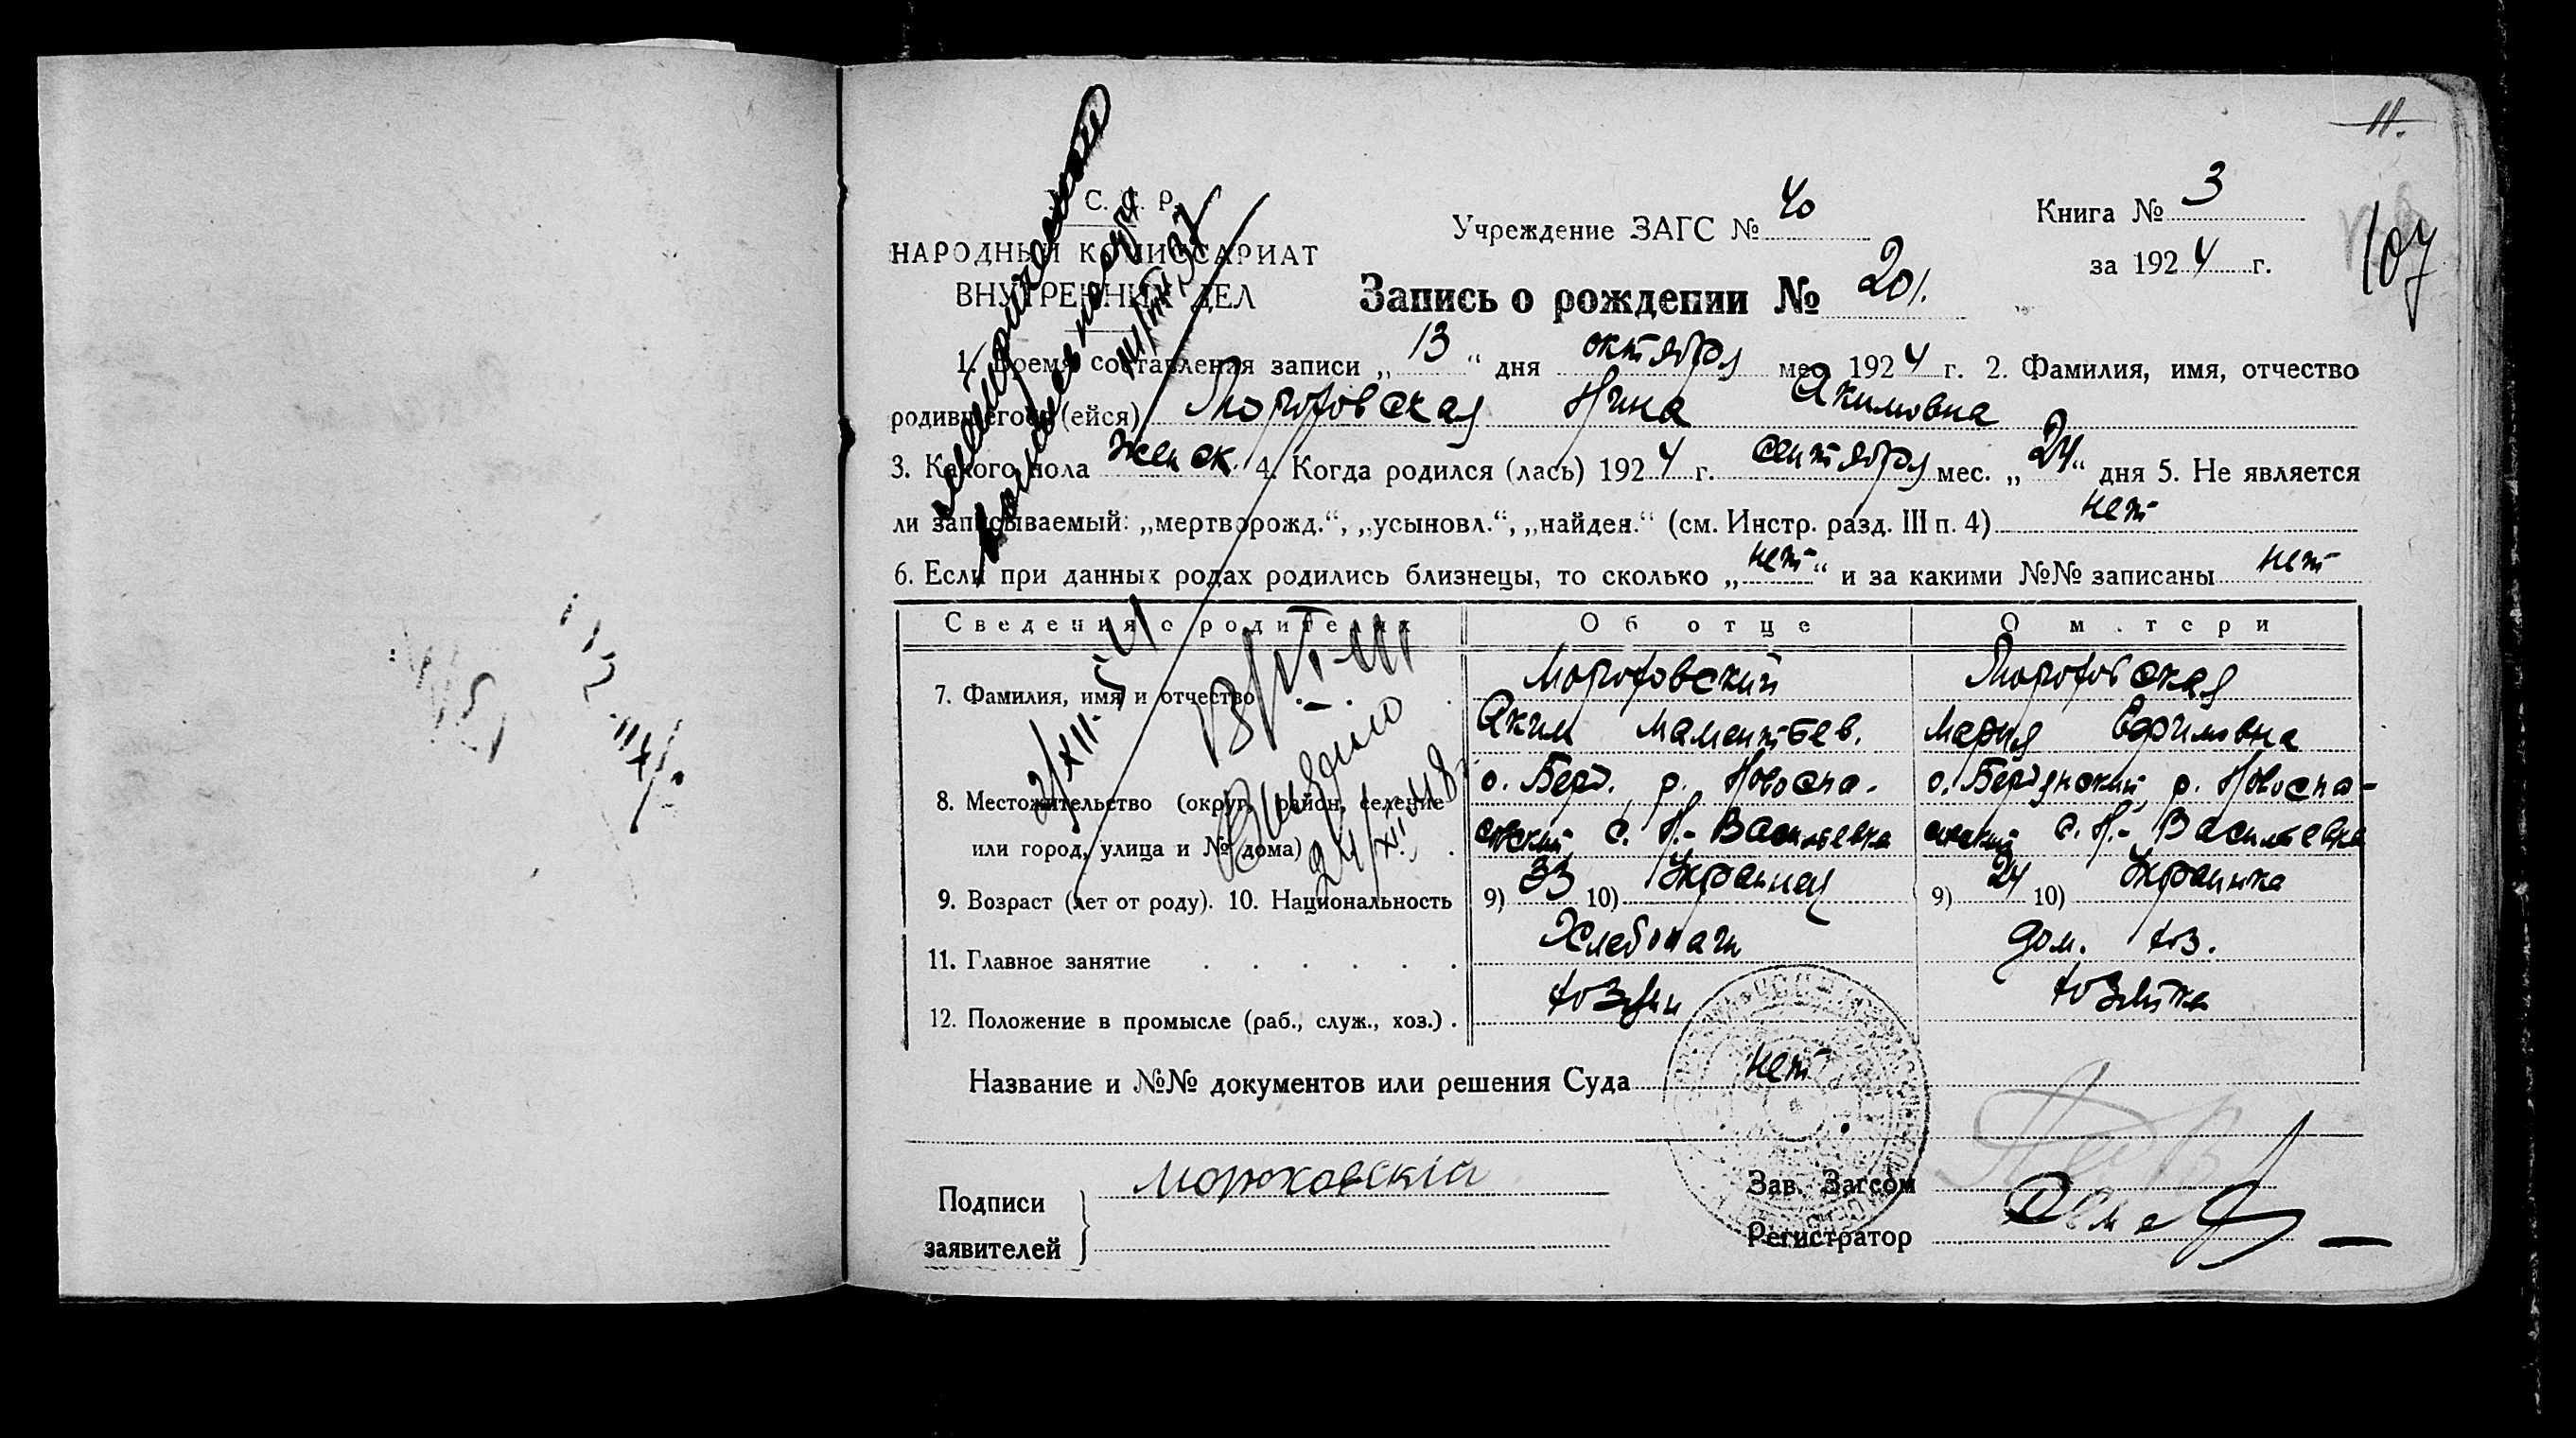 11.
С. С. Р.
НАРОДНЫЙ КОМИССАРИАТ
ВНУТРЕННИХ ДЕЛ
Учреждение ЗАГС № 40
Книга № 3
за 1924 г.
107
Запись о рождении № 201.
1. Время составления записи „13“ дня октября мес. 1924 г. 2. Фамилия, имя, отчество
родившегося (ейся) Морозовская Нина Акимовна
3. Какого пола женск. 4. Когда родился (лась) 1924 г. сентября мес. „24“ дня 5. Не является
ли записываемый: „мертворожд.“, „усыновл.“, „найден.“ (см. Инстр. разд. III п. 4) нет
6. Если при данных родах родились близнецы, то сколько „нет“ и за какими №№ записаны нет
Сведения о родителях Об отце О матери
7. Фамилия, имя и отчество
Мороховский Мороховская
Аким Маментьев. Мария Ефимовна
8. Местожительство (округ, район, селение
о. Берд. р. Новоспа- о. Бердянский, р. Новоспа-
или город, улица и № дома)
совский, с. Н.-Васильевка совский с. Н.-Васильевка
9. Возраст (лет от роду). 10. Национальность 9) 33 10) 9) 24 10) Украинка
11. Главное занятие Хлебопаш дом. хоз.
12. Положение в промысле (раб., служ., хоз.) хозяин хозяйка
Название и №№ документов или решения Суда нет
Подписи
заявителей
Мороховскій
Зав. Загсом
Регистратор